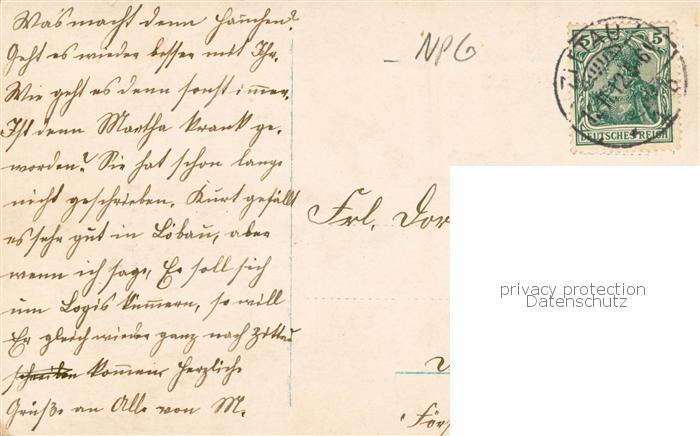 Was macht denn Hannchen?
Geht es wieder besser mit Ihr.
Wie geht es denn sonst immer.
Ist denn Martha krank ge-
worden? Sie hat schon lange
nicht geschrieben. Kurt gefällt
es sehr gut in Löbau, aber
wenn ich sage, Er soll sich
um Logis kümmern, so will
Er gleich wieder ganz nach Zittau
kommen. Herzliche
Grüße an Alle von M.
NPG
5
ZITTAU
DEUTSCHES REICH
Frl. Dor
privacy protection
Datenschutz